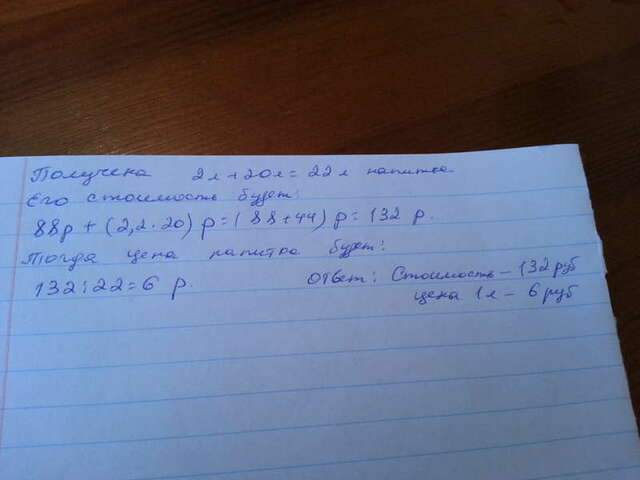 Получена 2л + 20л = 22л напитка.
Его стоимость будет:
88р + (2,2 · 20) р = (88 + 44) р = 132 р.
Тогда цена напитка будет:
132 : 22 = 6 р.
Ответ: Стоимость – 132 руб
цена 1л – 6 руб